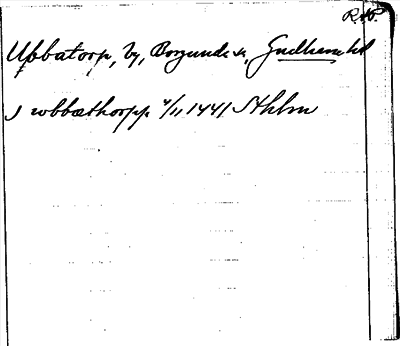 R.A.P.
Ubbatorp, by, Borgunda sn, Gudhems hd
J wbbathorpp 4/11 1441 Sthlm